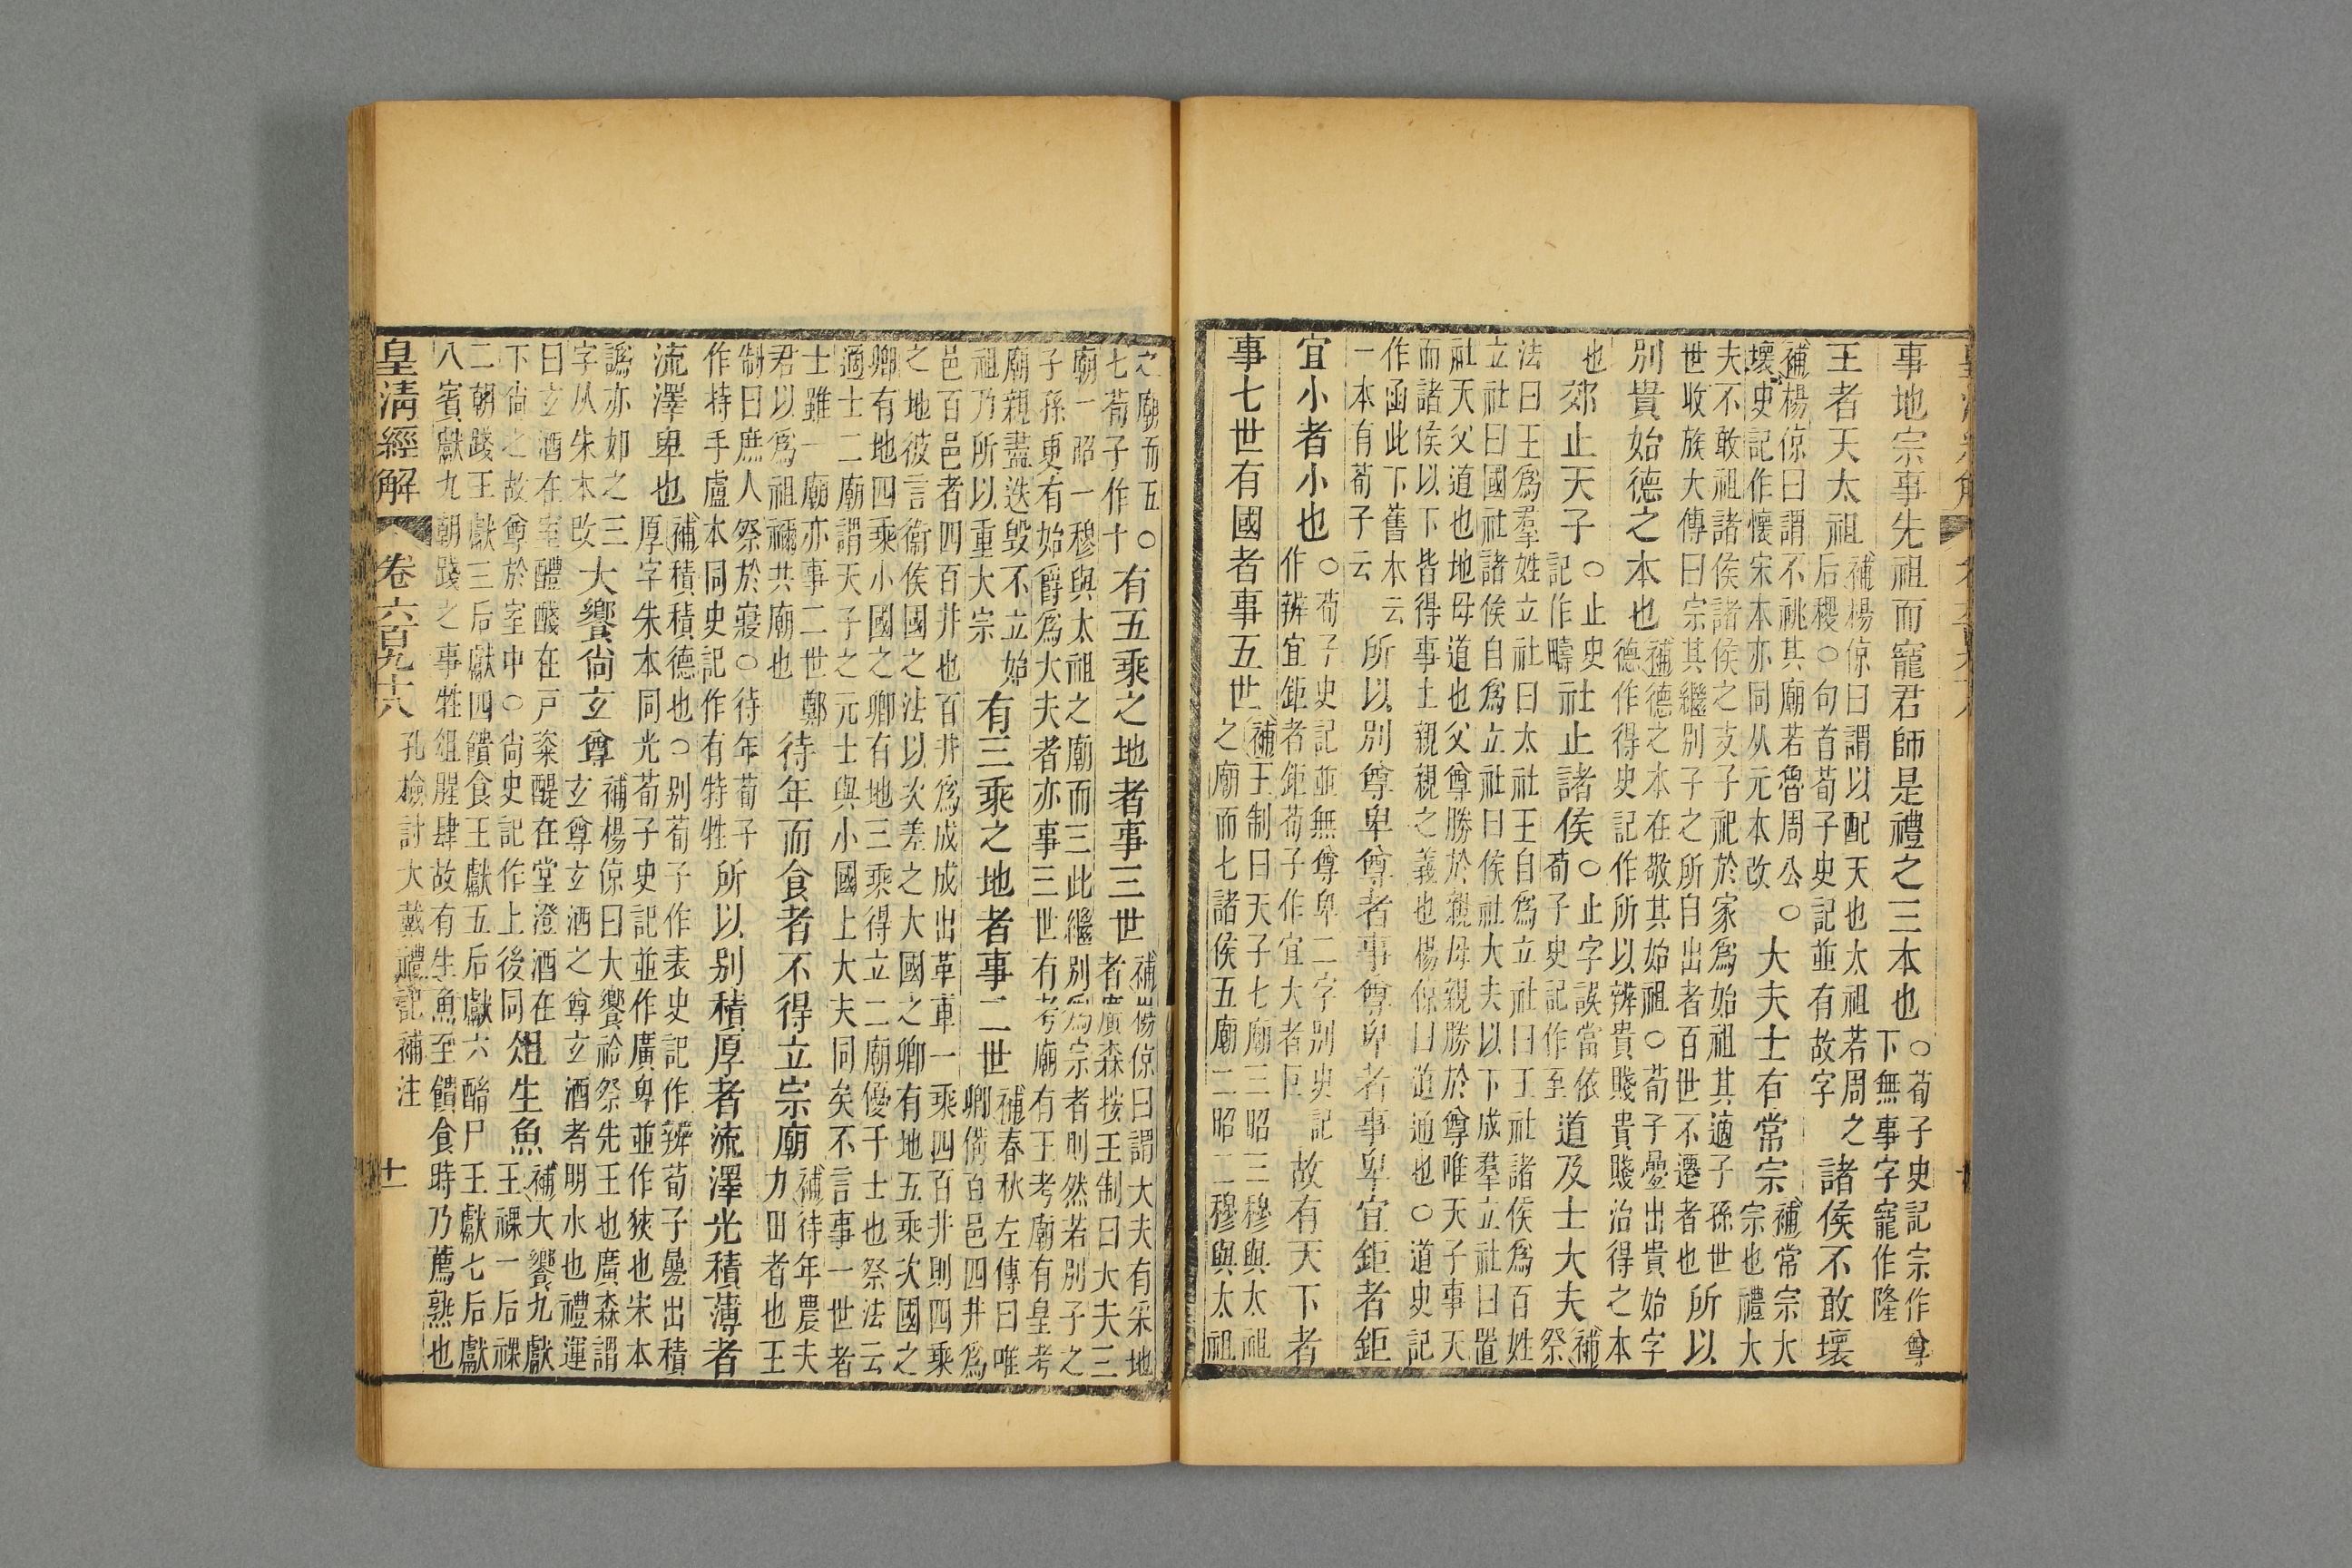 事地宗事先祖而寵君師是禮之三本也○荀子史記宗作尊下無事字寵作隆
王者天太祖補楊倞曰謂以配天也太祖若周之后稷○句首荀子史記並有故字諸侯不敢壞
補楊倞曰謂不祧其廟若魯周公○壞史記作懷宋本亦同从元本改大夫士有常宗補常宗大宗也禮大
夫不敢祖諸侯諸侯之支子祀於家爲始祖其適子孫世世收族大傳曰宗其繼別子之所自出者百世不遷者也所以
別貴始德之本也補德之本在敬其始祖○荀子疊出貴始字德作得史記作所以辨貴賤貴賤治得之本
也郊止天子○止史記作疇社止諸侯○止字誤當依荀子史記作至道及士大夫補祭
法曰王爲羣姓立社曰太社王自爲立社曰王社諸侯爲百姓立社曰國社諸侯自爲立社曰侯社大夫以下成羣立社曰置
社天父道也地母道也父尊勝於親母親勝於尊唯天子事天而諸侯以下皆得事土親親之義也楊倞曰道通也○道史記
作函此下舊本云一本有荀子云所以別尊卑尊者事尊卑者事卑宜鉅者鉅
宜小者小也○荀子史記並無尊卑二字別史記作辨宜鉅者鉅荀子作宜大者巨故有天下者
事七世有國者事五世補王制曰天子七廟三昭三穆與太祖之廟而七諸侯五廟二昭二穆與太祖
之廟而五○七荀子作十有五乘之地者事三世補楊倞曰謂大夫有采地者廣森按王制曰大夫三
廟一昭一穆與太祖之廟而三此繼別爲宗者則然若別子之子孫更有始爵爲大夫者亦事三世有考廟有王考廟有皇考
廟親盡迭毀不立始祖乃所以重大宗有三乘之地者事二世補春秋左傳曰唯卿備百邑四井爲
邑百邑者四百井也百井爲成成出革車一乘四百井則四乘之地彼言衞侯國之法以次差之大國之卿有地五乘次國之
卿有地四乘小國之卿有地三乘得立二廟優于士也祭法云適士二廟謂天子之元士與小國上大夫同矣不言事一世者
士雖一廟亦事二世鄭君以爲祖禰共廟也待年而食者不得立宗廟補待年農夫力田者也王
制曰庶人祭於寢○待年荀子作持手盧本同史記作有特牲所以別積厚者流澤光積薄者
流澤卑也補積積德也○別荀子作表史記作辨荀子疊出積厚字朱本同光荀子史記並作廣卑並作狹也宋本
譌亦如之三字从朱本改大饗尙玄尊補楊倞曰大饗祫祭先王也廣森謂玄尊玄酒之尊玄酒者明水也禮運
曰玄酒在室醴醆在戶粢醍在堂澄酒在下尙之故尊於室中○尙史記作上後同俎生魚補大饗九獻王祼一后祼
二朝踐王獻三后獻四饋食王獻五后獻六酳尸王獻七后獻八賓獻九朝踐之事牲俎腥肆故有生魚至饋食時乃薦熟也
皇淸經解 卷六百九十八 孔檢討大戴禮記補注 十一